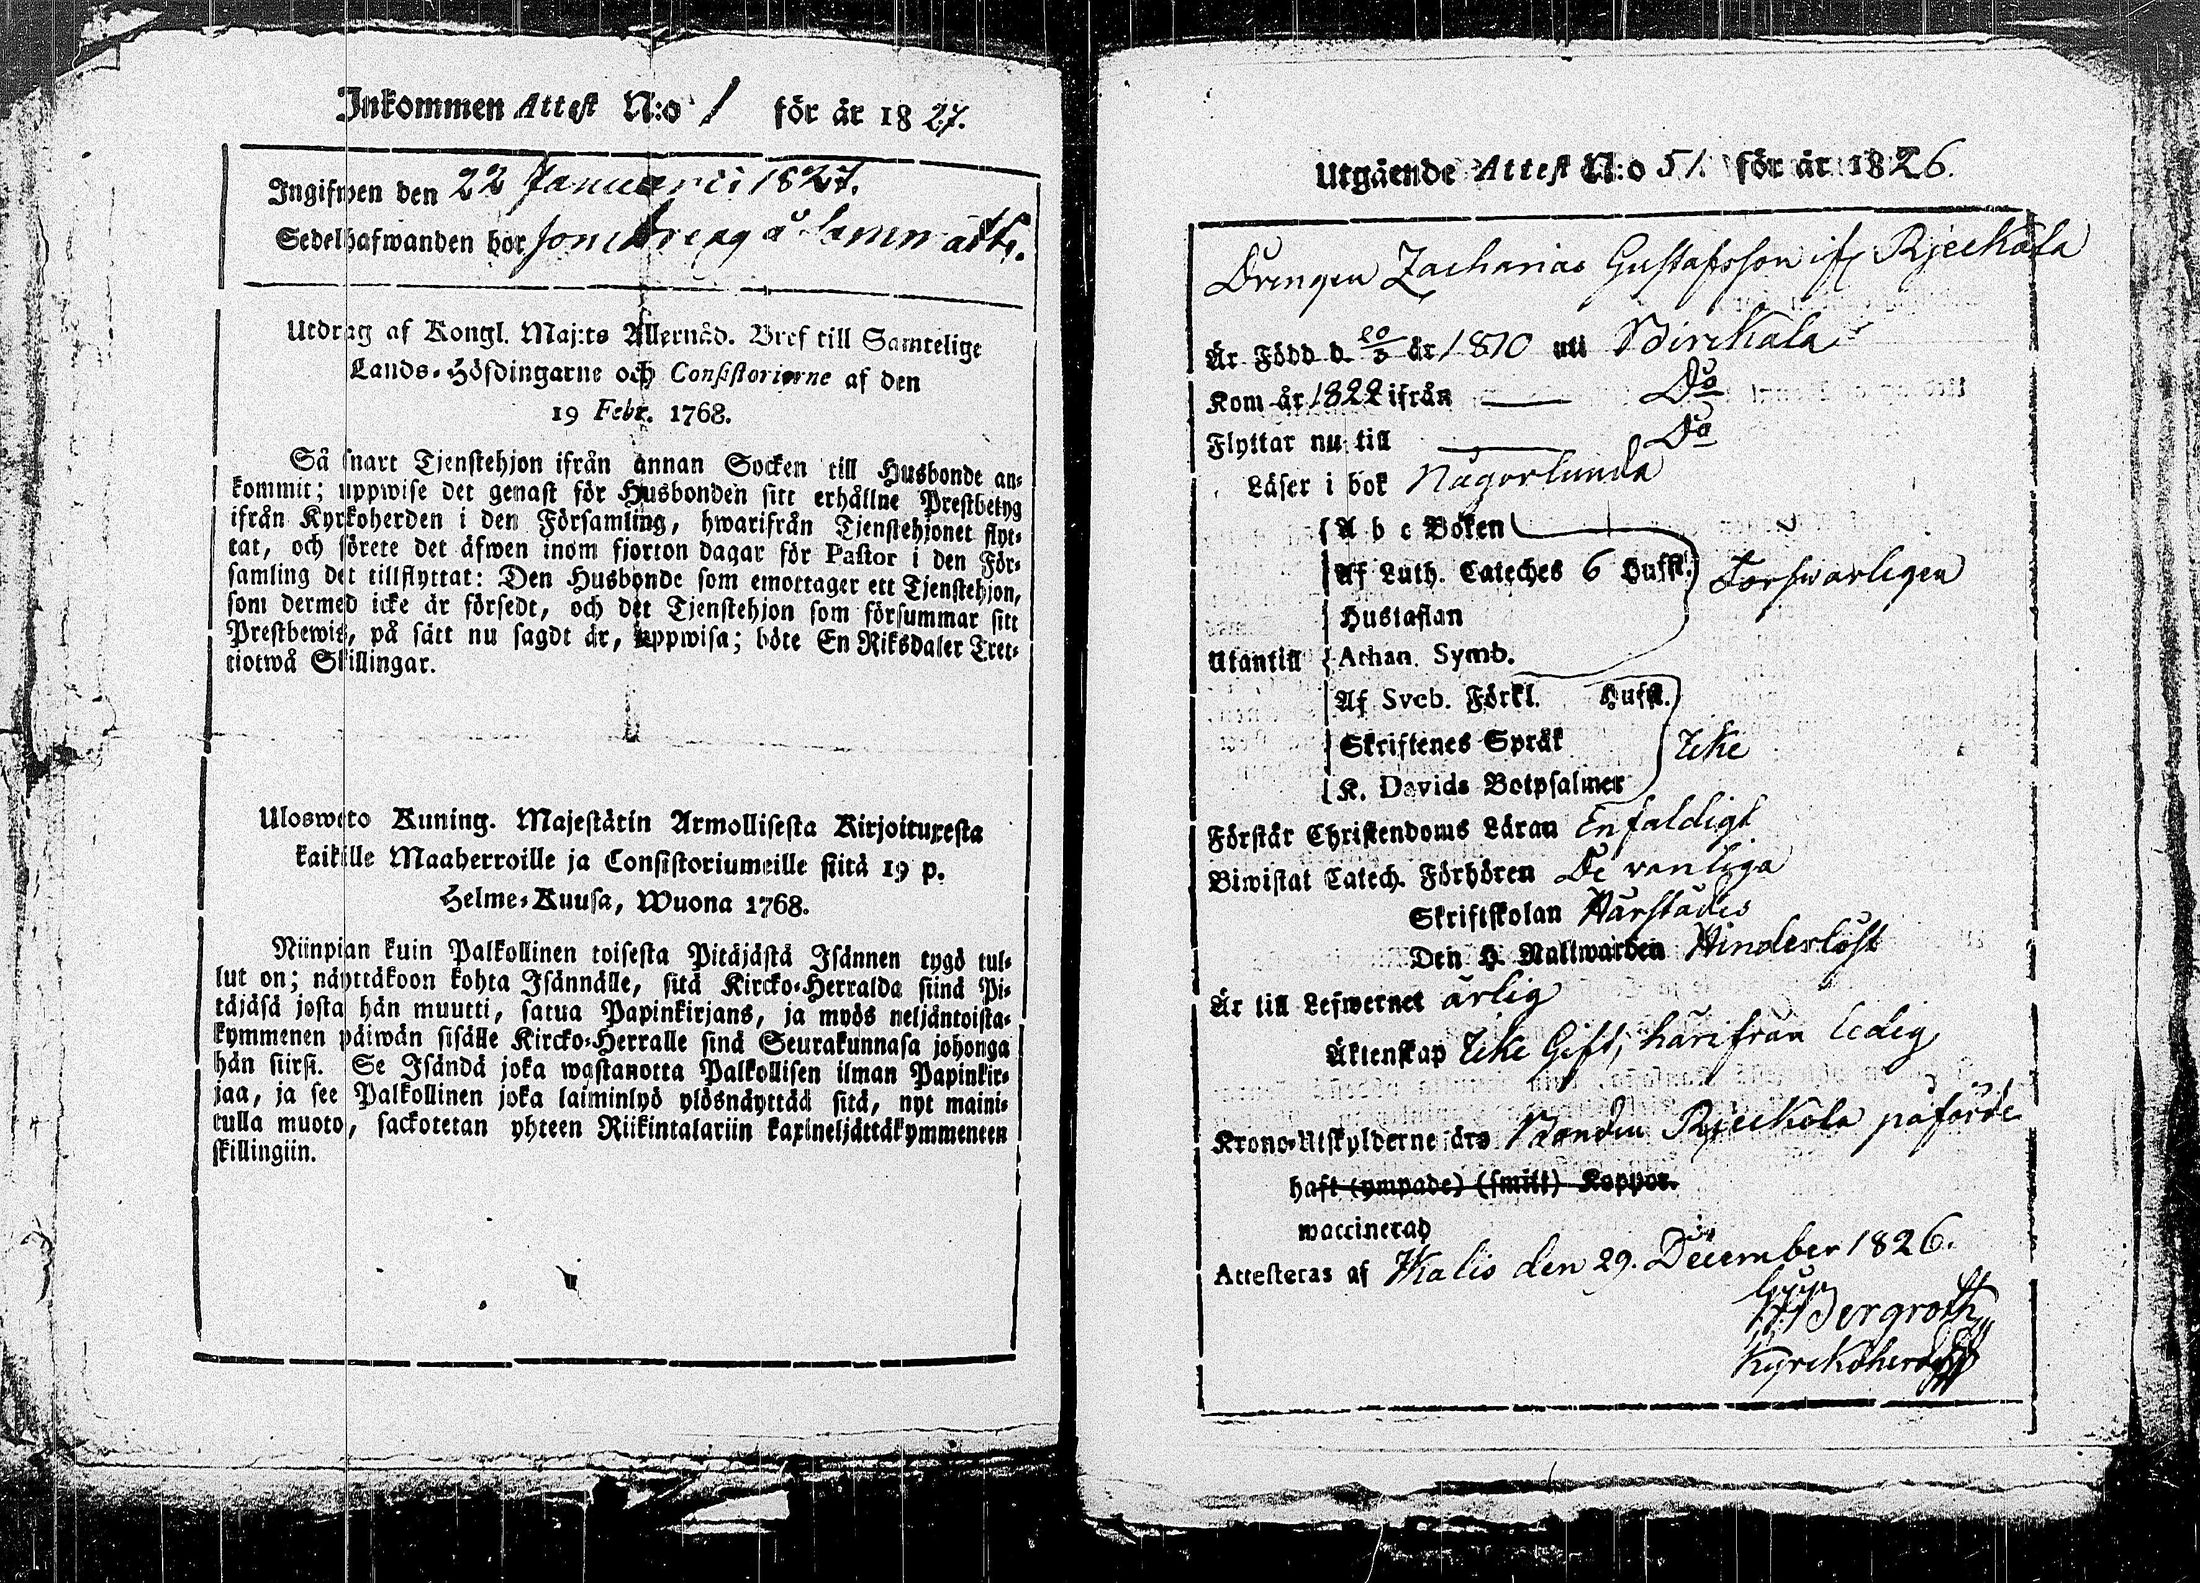 Inkommen Attest N:o 1 för år 1827.
Ingifwen den 22 Januarii 1827.
Sedelhafwanden bor som dreng å
Utdrag af Kongl. Maj:ts Allernåd. Bref till Samtelige
Lands-Höfdingarne och Consistorierne af den
19 Febr. 1768.
Så snart Tjenstehjon ifrån annan Socken till Husbonde an-
kommit; uppwise det genast för Husbonden sitt erhållne Prestbetyg
ifrån Kyrkoherden i den Församling, hwarifrån Tjenstehjonet flyt-
tat, och förete det äfwen inom fjorton dagar för Pastor i den För-
samling det tillflyttat: Den Husbonde som emottager ett Tjenstehjon,
som dermed icke är försedt, och det Tjenstehjon som försummar sitt
Prestbewis, på sätt nu sagdt är, uppwisa; böte En Riksdaler Tret-
tiotwå Skillingar.
Uloswéto Kuning. Majestätin Armollisesta Kirjoituxesta
kaikille Maaherroille ja Consistoriumeille siitä 19 p.
Helme-Kuusa, Wuona 1768.
Niinpian kuin Palkollinen toisesta Pitäjästä Isännen tygö tul-
lut on; näyttäkoon kohta Isännälle, sitä Kircko-Herralda siinä Pi-
täjäsä josta hän muutti, satua Papinkirjans, ja myös neljäntoista-
kymmenen päiwän sisälle Kircko-Herralle sinä Seurakunnasa johonga
hän siirsi. Se Isändä joka wastanotta Palkollisen ilman Papinkir-
jaa, ja see Palkollinen joka laiminlyö ylösnäyttää sitä, nyt maini-
tulla muoto, sackotetan yhteen Riikintalariin kaxineljättäkymmenteen
skillingiin.
Utgående Attest N:o 51. för år 1826.
Drengen Zacharias Gustafsson ifr Rjeckala
Är Född d. 20/3 år 1810 uti Birckala
Kom år 1822 ifrån — Do
Flyttar nu till — Do
Läser i bok Någorlunda
A b c Boken
Af Luth. Cateches 6 Hufst. Förswarligen
Hustaflan
Utantill Athan. Symb.
Af Sveb. Förkl. Hufst.
Skriftenes Språk Icke
K. Davids Botpsalmer
Förstår Christendoms Läran Enfaldigt
Biwistat Catech. Förhören De vanliga
Skriftskolan Härstädes
Den H. Nattwarden Hinderlöst
Är till Lefwernet ärlig
Äktenskap Icke Gift, härifrån ledig
Krono-Utskylderne äro Bonden Rjeckola påförde
haft (ympade) (smitt) Koppor.
waccinerad
Attesteras af Ikalis den 29. December 1826.
Bergroth
Kyrckoherde